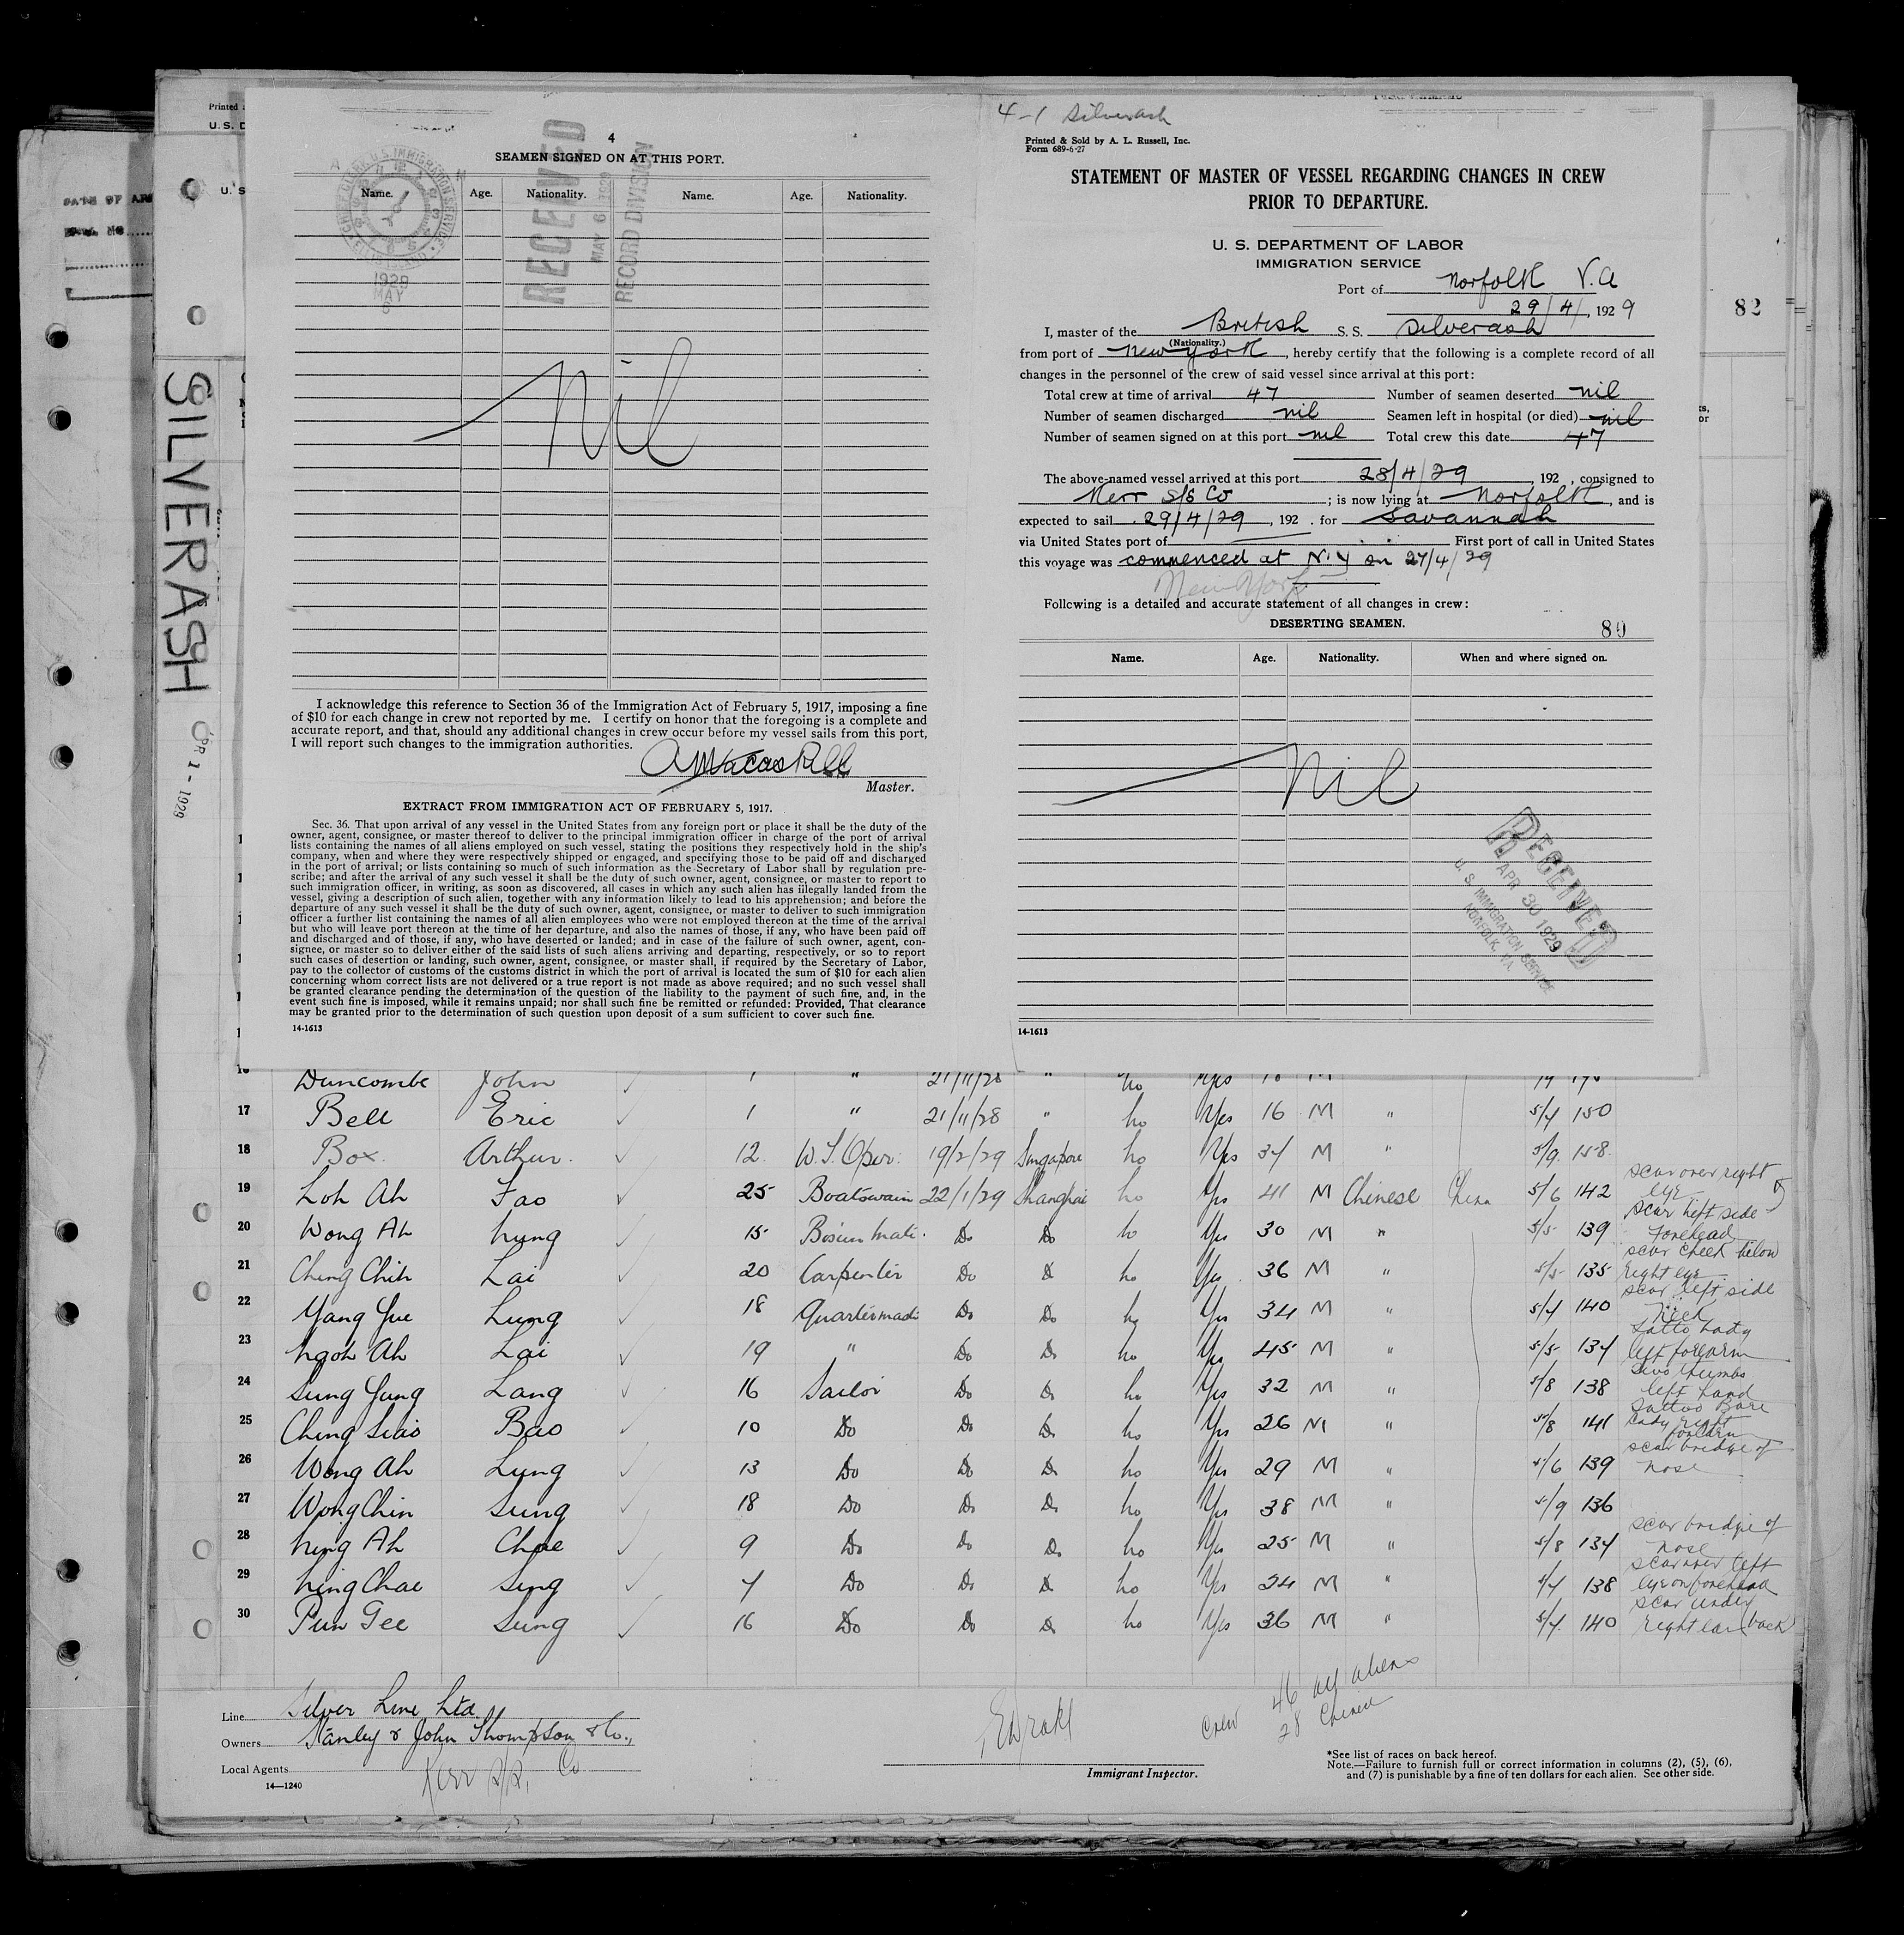 4
SEAMEN SIGNED ON AT THIS PORT.
Name. Age. Nationality. Name. Age. Nationality.
RECEIVED
MAY 6 1929
RECORD DIVISION
1929
MAY
6
Nil
I acknowledge this reference to Section 36 of the Immigration Act of February 5, 1917, imposing a fine
of $10 for each change in crew not reported by me. I certify on honor that the foregoing is a complete and
accurate report, and that, should any additional changes in crew occur before my vessel sails from this port,
I will report such changes to the immigration authorities.
Master.
EXTRACT FROM IMMIGRATION ACT OF FEBRUARY 5, 1917.
Sec. 36. That upon arrival of any vessel in the United States from any foreign port or place it shall be the duty of the
owner, agent, consignee, or master thereof to deliver to the principal immigration officer in charge of the port of arrival
lists containing the names of all aliens employed on such vessel, stating the positions they respectively hold in the ship's
company, when and where they were respectively shipped or engaged, and specifying those to be paid off and discharged
in the port of arrival; or lists containing so much of such information as the Secretary of Labor shall by regulation pre-
scribe; and after the arrival of any such vessel it shall be the duty of such owner, agent, consignee, or master to report to
such immigration officer, in writing, as soon as discovered, all cases in which any such alien has illegally landed from the
vessel, giving a description of such alien, together with any information likely to lead to his apprehension; and before the
departure of any such vessel it shall be the duty of such owner, agent, consignee, or master to deliver to such immigration
officer a further list containing the names of all alien employees who were not employed thereon at the time of the arrival
but who will leave port thereon at the time of her departure, and also the names of those, if any, who have been paid off
and discharged and of those, if any, who have deserted or landed; and in case of the failure of such owner, agent, con-
signee, or master so to deliver either of the said lists of such aliens arriving and departing, respectively, or so to report
such cases of desertion or landing, such owner, agent, consignee, or master shall, if required by the Secretary of Labor,
pay to the collector of customs of the customs district in which the port of arrival is located the sum of $10 for each alien
concerning whom correct lists are not delivered or a true report is not made as above required; and no such vessel shall
be granted clearance pending the determination of the question of the liability to the payment of such fine, and, in the
event such fine is imposed, while it remains unpaid; nor shall such fine be remitted or refunded: Provided, That clearance
may be granted prior to the determination of such question upon deposit of a sum sufficient to cover such fine.
14-1613
4-1 Silverash
Printed & Sold by A. L. Russell, Inc.
Form 689-6-27
STATEMENT OF MASTER OF VESSEL REGARDING CHANGES IN CREW
PRIOR TO DEPARTURE.
U. S. DEPARTMENT OF LABOR
IMMIGRATION SERVICE
Port of Norfolk V.A
29/4/, 1929
I, master of the British S. S. Silverash
(Nationality.)
from port of New York, hereby certify that the following is a complete record of all
changes in the personnel of the crew of said vessel since arrival at this port:
Total crew at time of arrival 47 Number of seamen deserted nil
Number of seamen discharged nil Seamen left in hospital (or died) nil
Number of seamen signed on at this port nil Total crew this date 47
The above-named vessel arrived at this port 28/4/29, 192 , consigned to
Kerr S/S Co; is now lying at Norfolk, and is
expected to sail 29/4/29, 192 . for Savannah
via United States port of First port of call in United States
this voyage was commenced at N.Y on 27/4/29
New York
Following is a detailed and accurate statement of all changes in crew:
DESERTING SEAMEN.
80
Name. Age. Nationality. When and where signed on.
Nil
RECEIVED
APR 30 1929
U. S. IMMIGRATION SERVICE
NORFOLK, VA.
14-1613
82
SILVERASH
APR 1 - 1929
Duncombe John ✓ 1 " 21/11/28 " no Yes
17 Bell Eric ✓ 1 " 21/11/28 " no Yes 16 M " 5/4 150
18 Box Arthur ✓ 12 W.T. Oper. 19/2/29 Singapore no Yes 34 M " 5/9 158
19 Loh Ah Fao ✓ 25 Boatswain 22/1/29 Shanghai no Yes 41 M Chinese China 5/6 142 scar over right eye
20 Wong Ah hung ✓ 15 Bosun mate Do Do no Yes 30 M " 5/5 139 scar left side forehead
21 Ching Chih Lai ✓ 20 Carpenter Do Do no Yes 36 M " 5/5 135 scar cheek below right eye
22 Yang Yue Lung ✓ 18 Quartermaster Do Do no Yes 34 M " 5/4 140 scar left side neck
23 Ngoh Ah Lai ✓ 19 " Do Do no Yes 45 M " 5/5 134 Tatto Lady left forearm
24 Sung Yung Lang ✓ 16 Sailor Do Do no Yes 32 M " 5/8 138 two thumbs left hand
25 Ching Siao Bao ✓ 10 Do Do Do no Yes 26 M " 5/8 141 Tattoo Bare Lady right forearm
26 Wong Ah Lung ✓ 13 Do Do Do no Yes 29 M " 5/6 139 scar bridge of nose
27 Wong Chin Sung ✓ 18 Do Do Do no Yes 38 M " 5/9 136
28 Ning Ah Chae ✓ 9 Do Do Do no Yes 25 M " 5/8 134 scar bridge of nose
29 Ning Chae Sing ✓ 4 Do Do Do no Yes 24 M " 5/4 138 scar over left eye on forehead
30 Pun Gee Sung ✓ 16 Do Do Do no Yes 36 M " 5/4 140 scar under right ear (back
Line Silver Line Ltd.
Owners Stanley & John Thompson & Co.,
Local Agents Kerr S/S. Co
14—1240
Immigrant Inspector.
Crew 46 all aliens
28 Chinese
*See list of races on back hereof.
Note.—Failure to furnish full or correct information in columns (2), (5), (6),
and (7) is punishable by a fine of ten dollars for each alien. See other side.